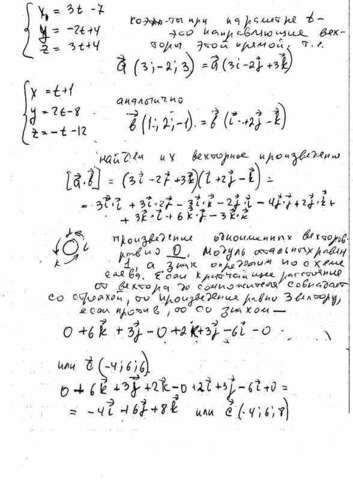 x = 3t - 7
y = -2t+4
z = 3t+4
при параметре t-
это направляющие век-
торы этой прямой, т.е.
a⃗ (3; -2; 3) = a⃗ (3i⃗ - 2j⃗ + 3k⃗)
x = t+1
y = 2t-8
z = -t-12
аналогично
b⃗ (1; 2; -1) = b⃗ (i⃗ + 2j⃗ - k⃗)
найдем их векторное произведение
[a⃗·b⃗] = (3i⃗ - 2j⃗ + 3k⃗)(i⃗ + 2j⃗ - k⃗) =
произведение одноименных векторов
равно 0. Модуль остальных равен
1, а знак определим по схеме
слева. Если
от вектора до сомножителя совпадает
со стрелкой, то произведение равно 3 вектору,
если против, то со знаком —
0 + 6k⃗ + 3j⃗ - 0 + 2k⃗ + 3j⃗ - 6i⃗ - 0
или c⃗ (-4; 6; 6)
0 + 6k⃗ + 3j⃗ + 2k⃗ - 0 + 2i⃗ + 3j⃗ - 6i⃗ + 0 =
= -4i⃗ + 6j⃗ + 8k⃗ или c⃗ (-4; 6; 8)